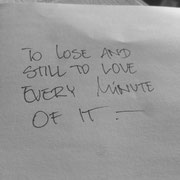 TO LOSE AND
STILL TO LOVE
EVERY MINUTE
OF IT.—